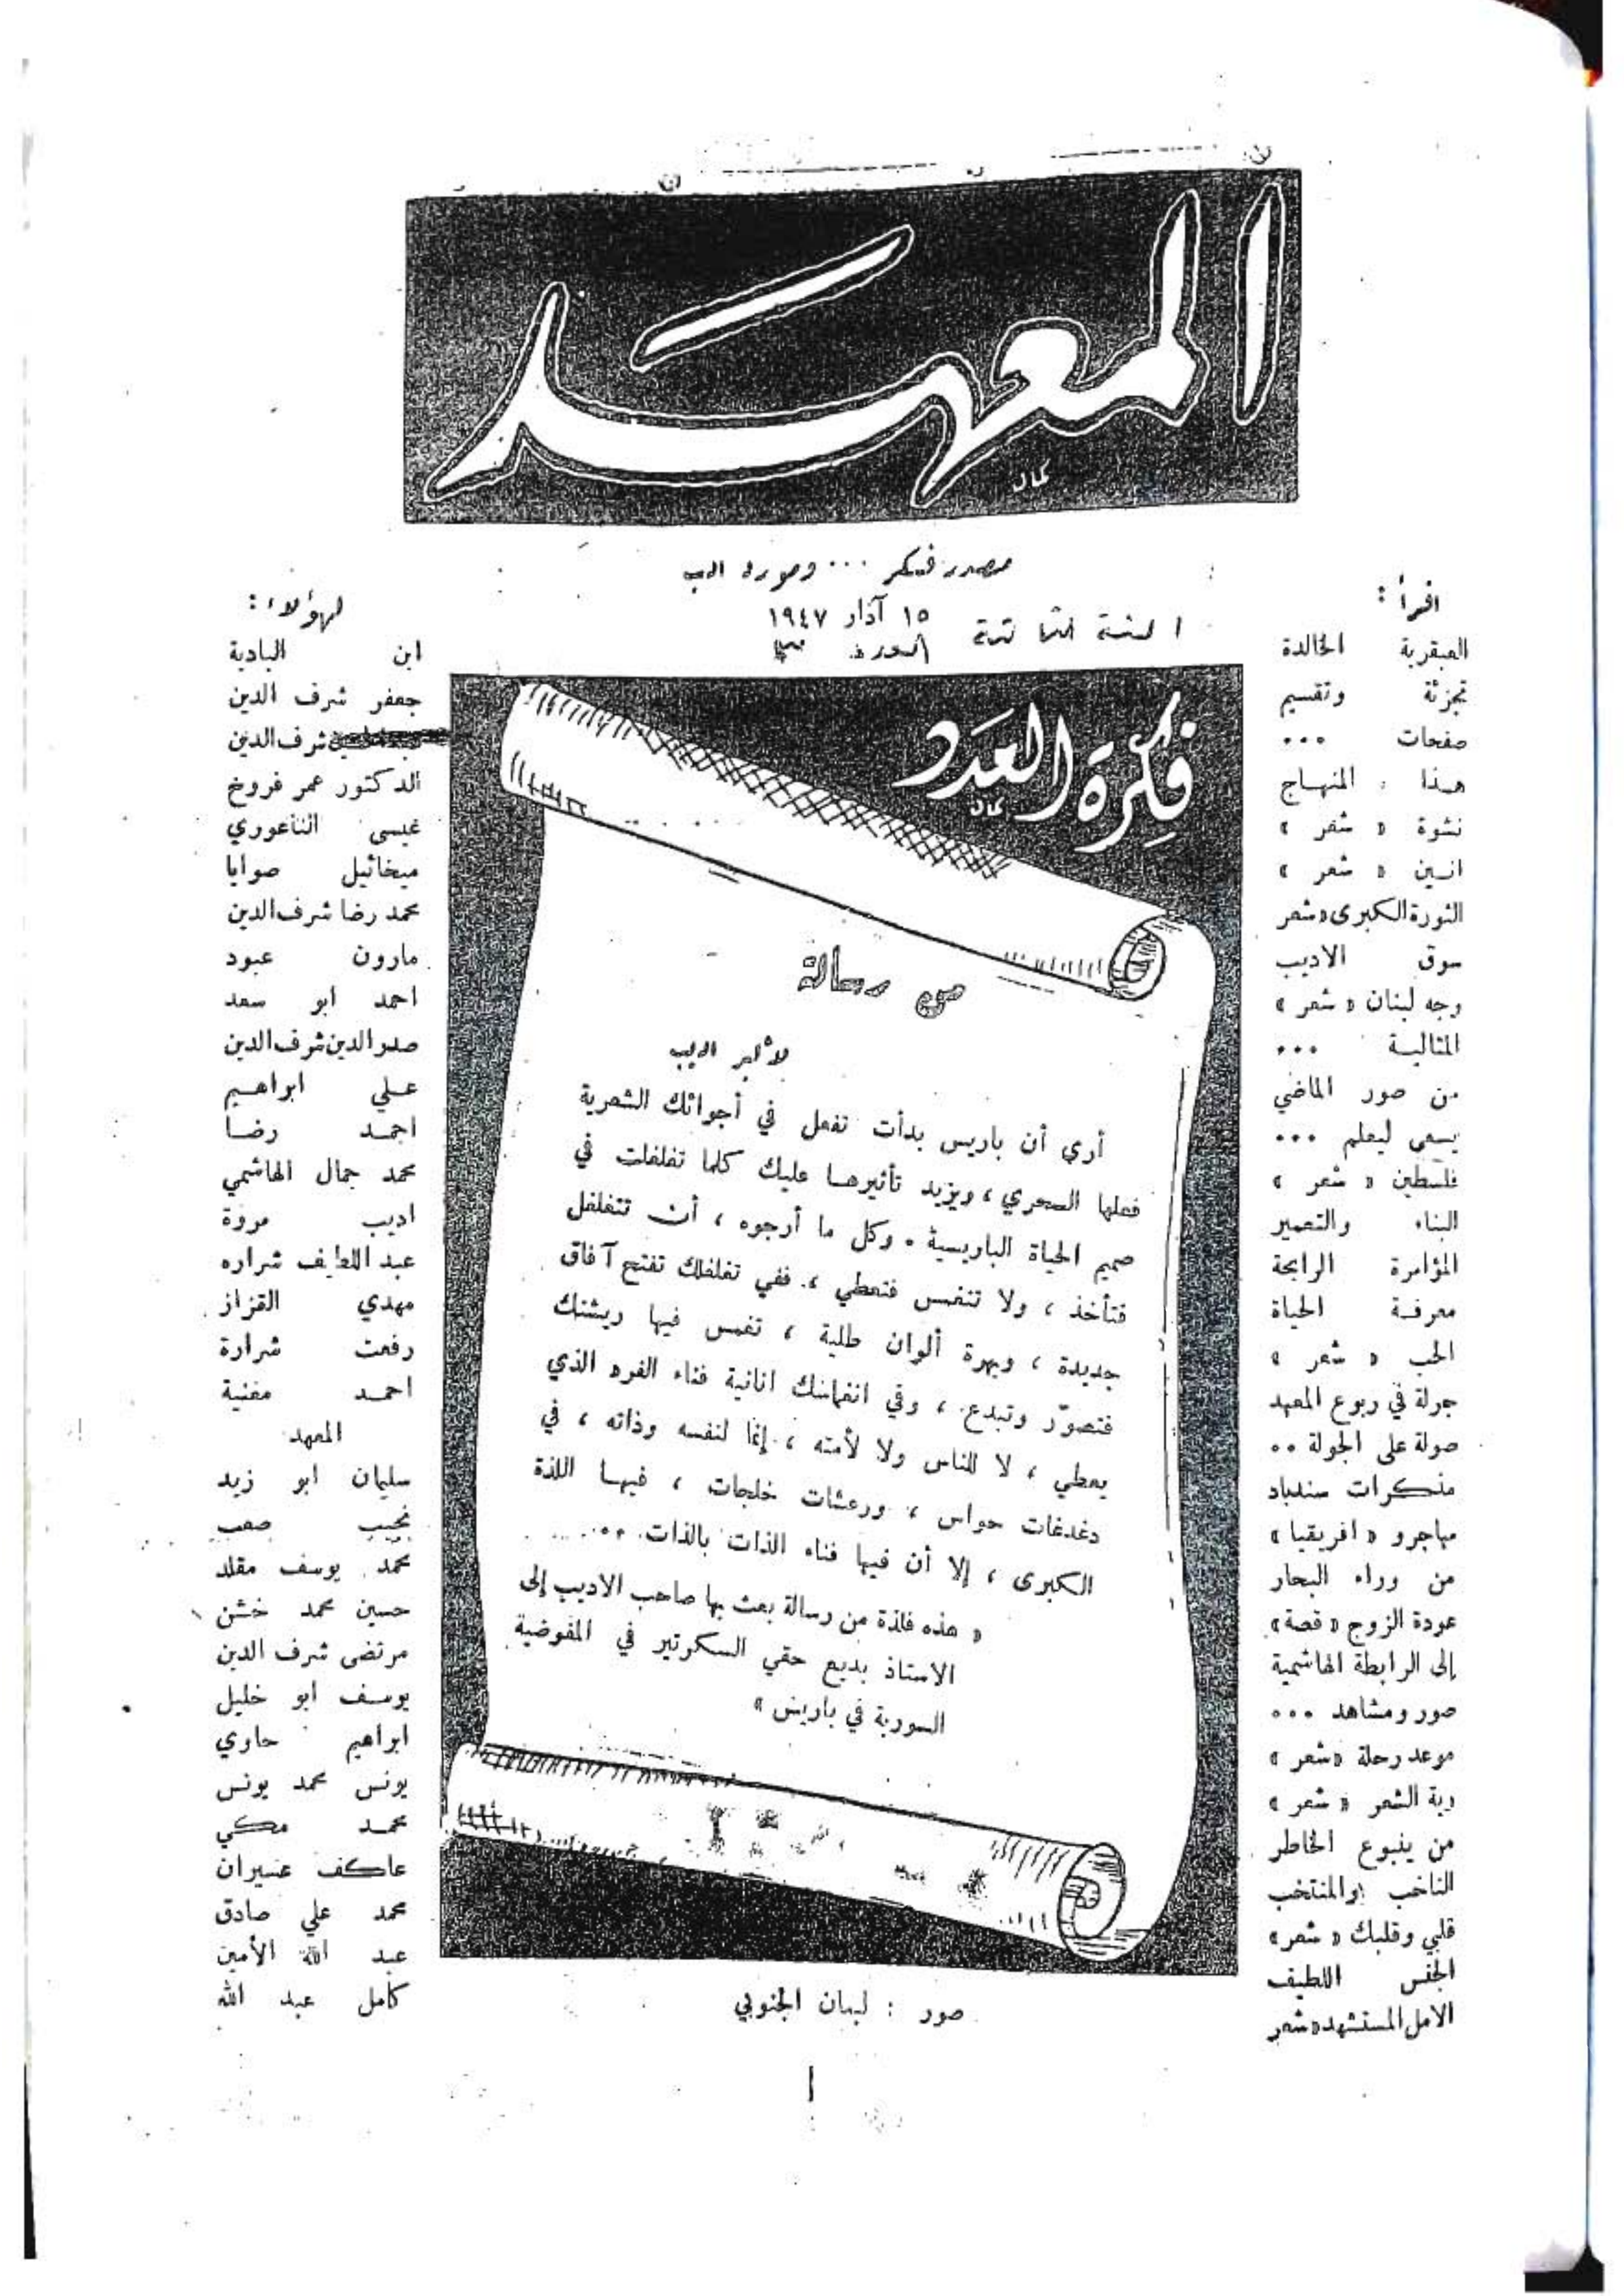 المعهد
كمال
مصدر فكر ... وصورة ادب
السنة الثالثة
١٥ آذار ١٩٤٧
العدد
اقرأ :
العبقرية الخالدة
تجزئة وتقسيم
صفحات ...
هذا المنهاج
نشوة « شعر »
انين « شعر »
الثورة الكبرى «شعر
سوق الاديب
وجه لبنان « شعر »
المثالية ...
من صور الماضي
يسعى ليعلم ...
فلسطين « شعر »
البناء والتعمير
المؤامرة الرابحة
معرفة الحياة
الحب « شعر »
جولة في ربوع المعهد
صولة على الجولة ..
مذكرات سندباد
مهاجرو « افريقيا »
من وراء البحار
عودة الزوج « قصة»
إلى الرابطة الهاشمية
صور ومشاهد ...
موعد رحلة «شعر »
ربة الشعر « شعر »
من ينبوع الخاطر
الناخب والمنتخب
قلبي وقلبك « شعر»
الجنس اللطيف
الامل المستشهد«شعر
فكرة العدد
كمال
من رسالة
لألبير اديب
أرى أن باريس بدأت تفعل في أجوائك الشعرية
فعلها السحري ، ويزيد تأثيرهـا عليك كلما تغلغلت في
صميم الحياة الباريسية . وكل ما أرجوه ، أن تتغلغل
فتأخذ ، ولا تنغمس فتعطي ، ففي تغلغلك تفتح آفاق
جديدة ، وبهرة ألوان طلية ، تغمس فيها ريشتك
فتصوّر وتبدع ، وفي انغماسك انانية فناء الفرد الذي
يعطي ، لا للناس ولا لأمته ، إنما لنفسه وذاته ، في
دغدغات حواس ، ورعشات خلجات ، فيهـا اللذة
الكبرى ، إلا أن فيها فناء الذات بالذات ..
« هذه فلذة من رسالة بعث بها صاحب الاديب إلى
الاستاذ بديع حقي السكرتير في المفوضية
السورية في باريس »
صور : لبنان الجنوبي
١
لهؤلاء :
ابن البادية
جعفر شرف الدين
شرف الدين
الدكتور عمر فروخ
عيسى الناعوري
ميخائيل صوايا
محمد رضا شرف الدين
مارون عبود
احمد ابو سعد
صدر الدين شرف الدين
عـلي ابراهـيم
احمـد رضـا
محمد جمال الهاشمي
اديب مروة
عبد اللطيف شراره
مهدي القزاز
رفعت شرارة
احمـد مغنية
المعهد
سليمان ابو زيد
نجيب صعب
محمد يوسف مقلد
حسين محمد خشن
مرتضى شرف الدين
يوسف ابو خليل
ابراهيم حاوي
يونس محمد يونس
محمـد مكي
عاكف عسيران
محمد علي صادق
عبد الله الأمين
كامل عبد الله